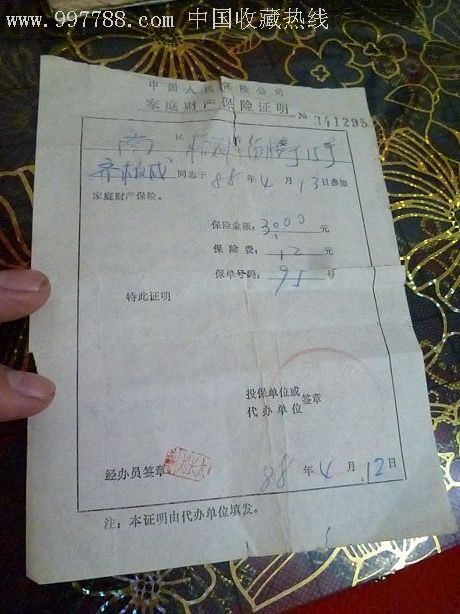 www.997788.com 中国收藏热线
中国人民保险公司
家庭财产保险证明
№ 341295
南 区
同志于 88 年 4 月 13 日参加
家庭财产保险。
保险金额: 3000 元
保险费: 12 元
保单号码: 95 号
特此证明
投保单位或
代办单位 签章
经办员签章
88 年 4 月 12 日
注：本证明由代办单位填发。